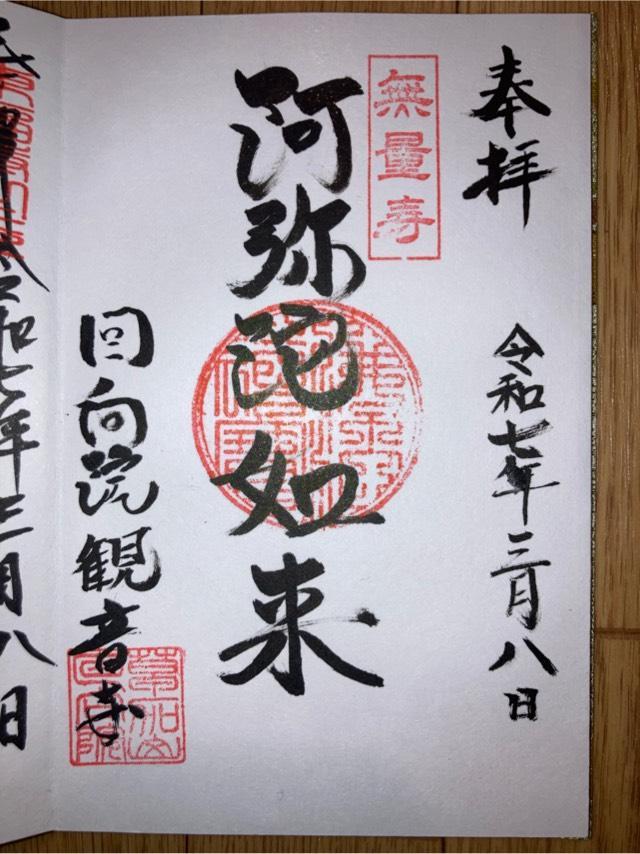 奉拝
令和七年三月八日
無量寿
阿弥陀如来
回向院観音寺
令和七年三月八日